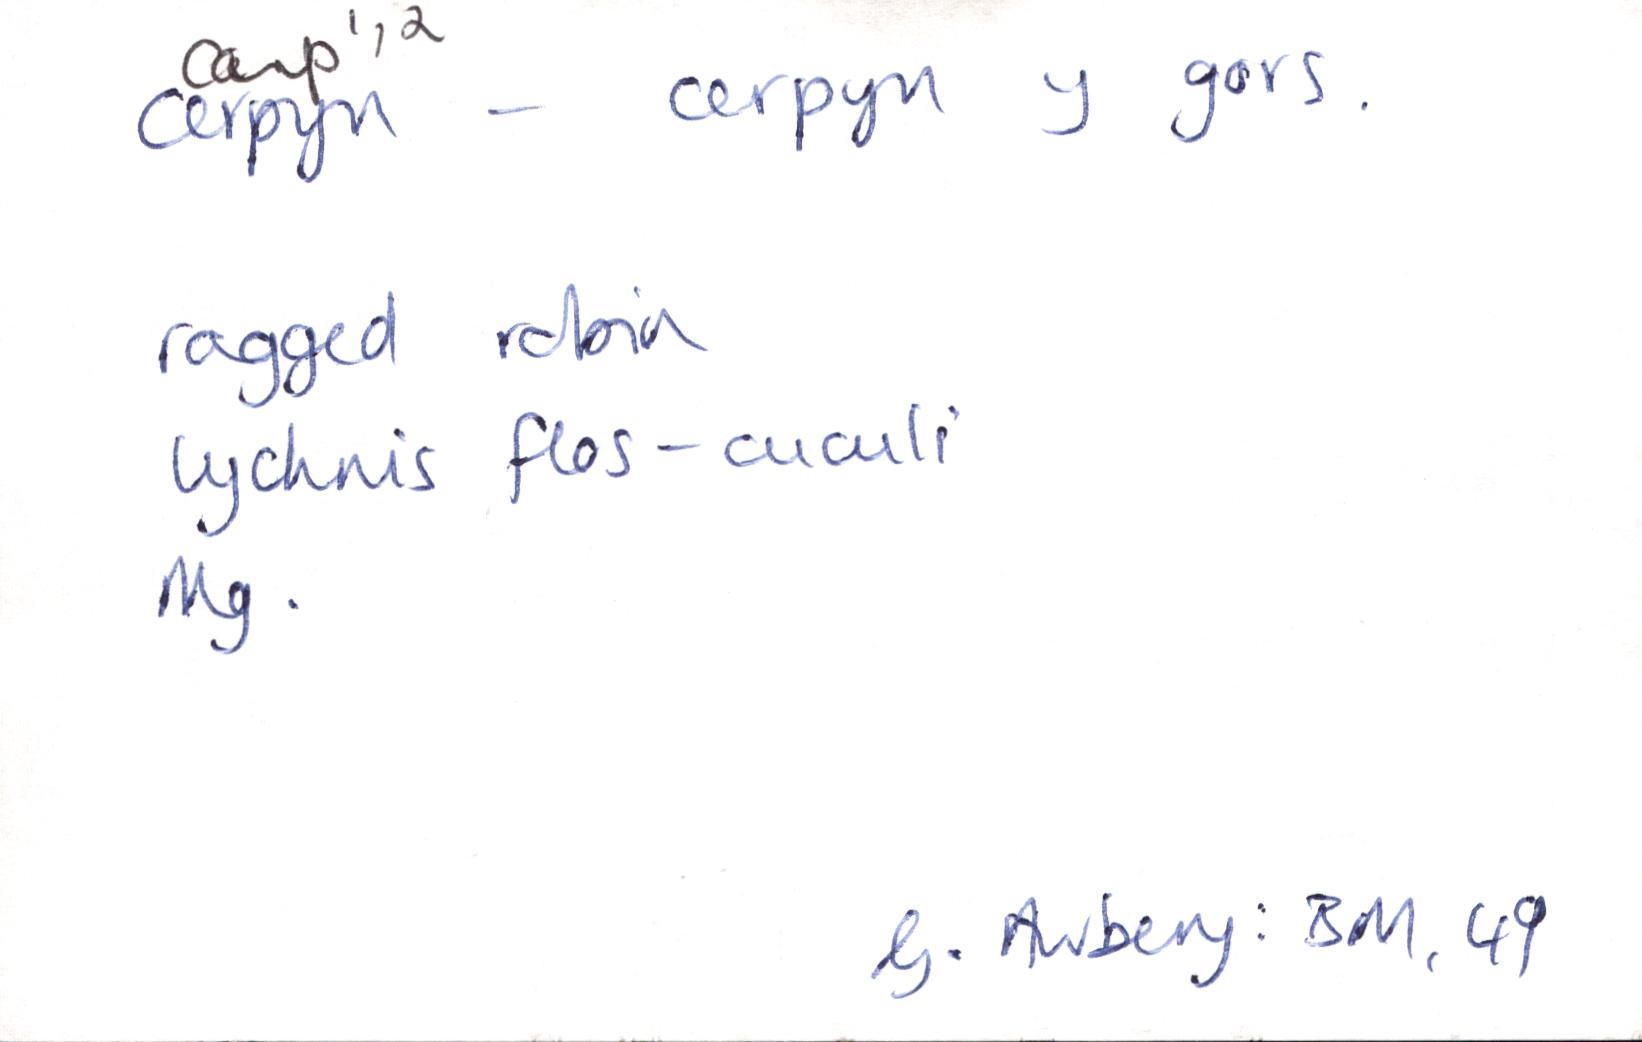 carp 1,2
cerpyn – cerpyn y gors.
ragged robin
lychnis flos-cuculi
Mg.
G. Awbery: BM, 49